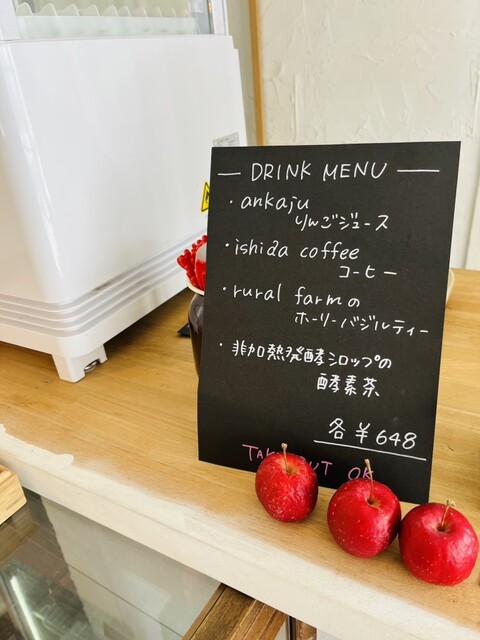 DRINK MENU
・ankaju
りんごジュース
・ishida coffee
コーヒー
・rural farmの
ホーリーバジルティー
・非加熱発酵シロップの
酵素茶
各￥648
TAKE OUT OK